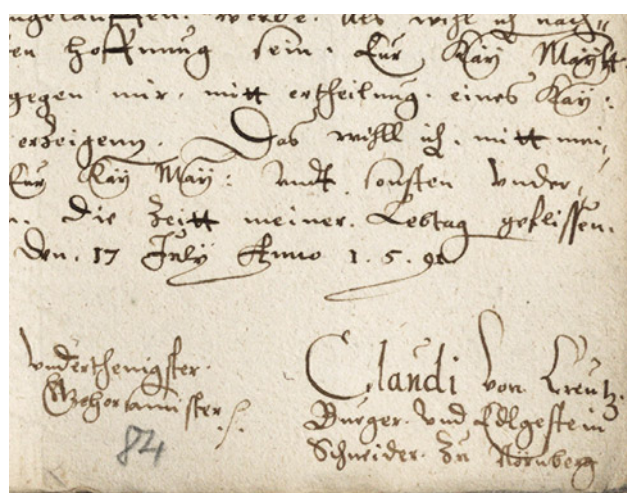 werde. als wihl ich nach=
en hoffnung sein. Eur Kay Maÿtt.
gegen mir. mitt ertheilung. eines Kaÿ:
erzeigenn. Das wihll ich. mitt mei,,
Eur Kaÿ Maÿ: undt sonsten vnder,,
n. die Zeitt meiner. Lebtag geflissen.
Den. 17 Julÿ Anno 1. 5. 91
vnderthenigster.
Gehorsammster
84
Claudi von Creutz.
Burger. vnd Edlgestein
Schneider. zu Nörnberg